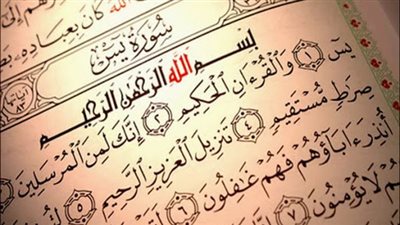 إِلَىٰ
ٱللَّهَ كَانَ بِعِبَادِهِۦ
سُورَةُ يسٓ
آياتها ٨٣
بِسْمِ ٱللَّهِ ٱلرَّحْمَٰنِ ٱلرَّحِيمِ
يسٓ ١ وَٱلْقُرْءَانِ ٱلْحَكِيمِ ٢ إِنَّكَ لَمِنَ ٱلْمُرْسَلِينَ
صِرَٰطٍ مُّسْتَقِيمٍ ٤ تَنزِيلَ ٱلْعَزِيزِ ٱلرَّحِيمِ ٥
أُنذِرَ ءَابَآؤُهُمْ فَهُمْ غَٰفِلُونَ ٦ لَقَدْ
فَهُمْ لَا يُؤْمِنُونَ ٧